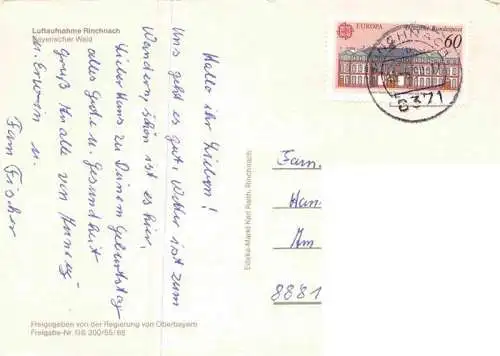 Luftaufnahme Rinchnach
Bayerischer Wald
Hallo ihr Lieben!
Uns geht es gut, Wetter ist zum
Wandern, schön ist es hier,
Lieber Hans zu Deinem Geburtstag
alles Gute u. Gesundheit
Gruß an alle von
u. Erwin u.
Fam Fischer
Freigegeben von der Regierung von Oberbayern
Freigabe-Nr. GS 300/55/88
Edeka-Markt Karl Raith, Rinchnach
EUROPA Deutsche Bundespost
60
8371
Fam.
Han
Am
8881